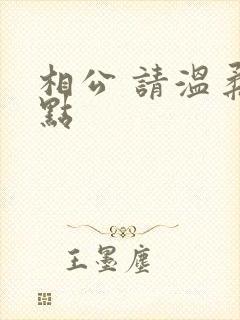 相公 請溫柔
點
王墨塵